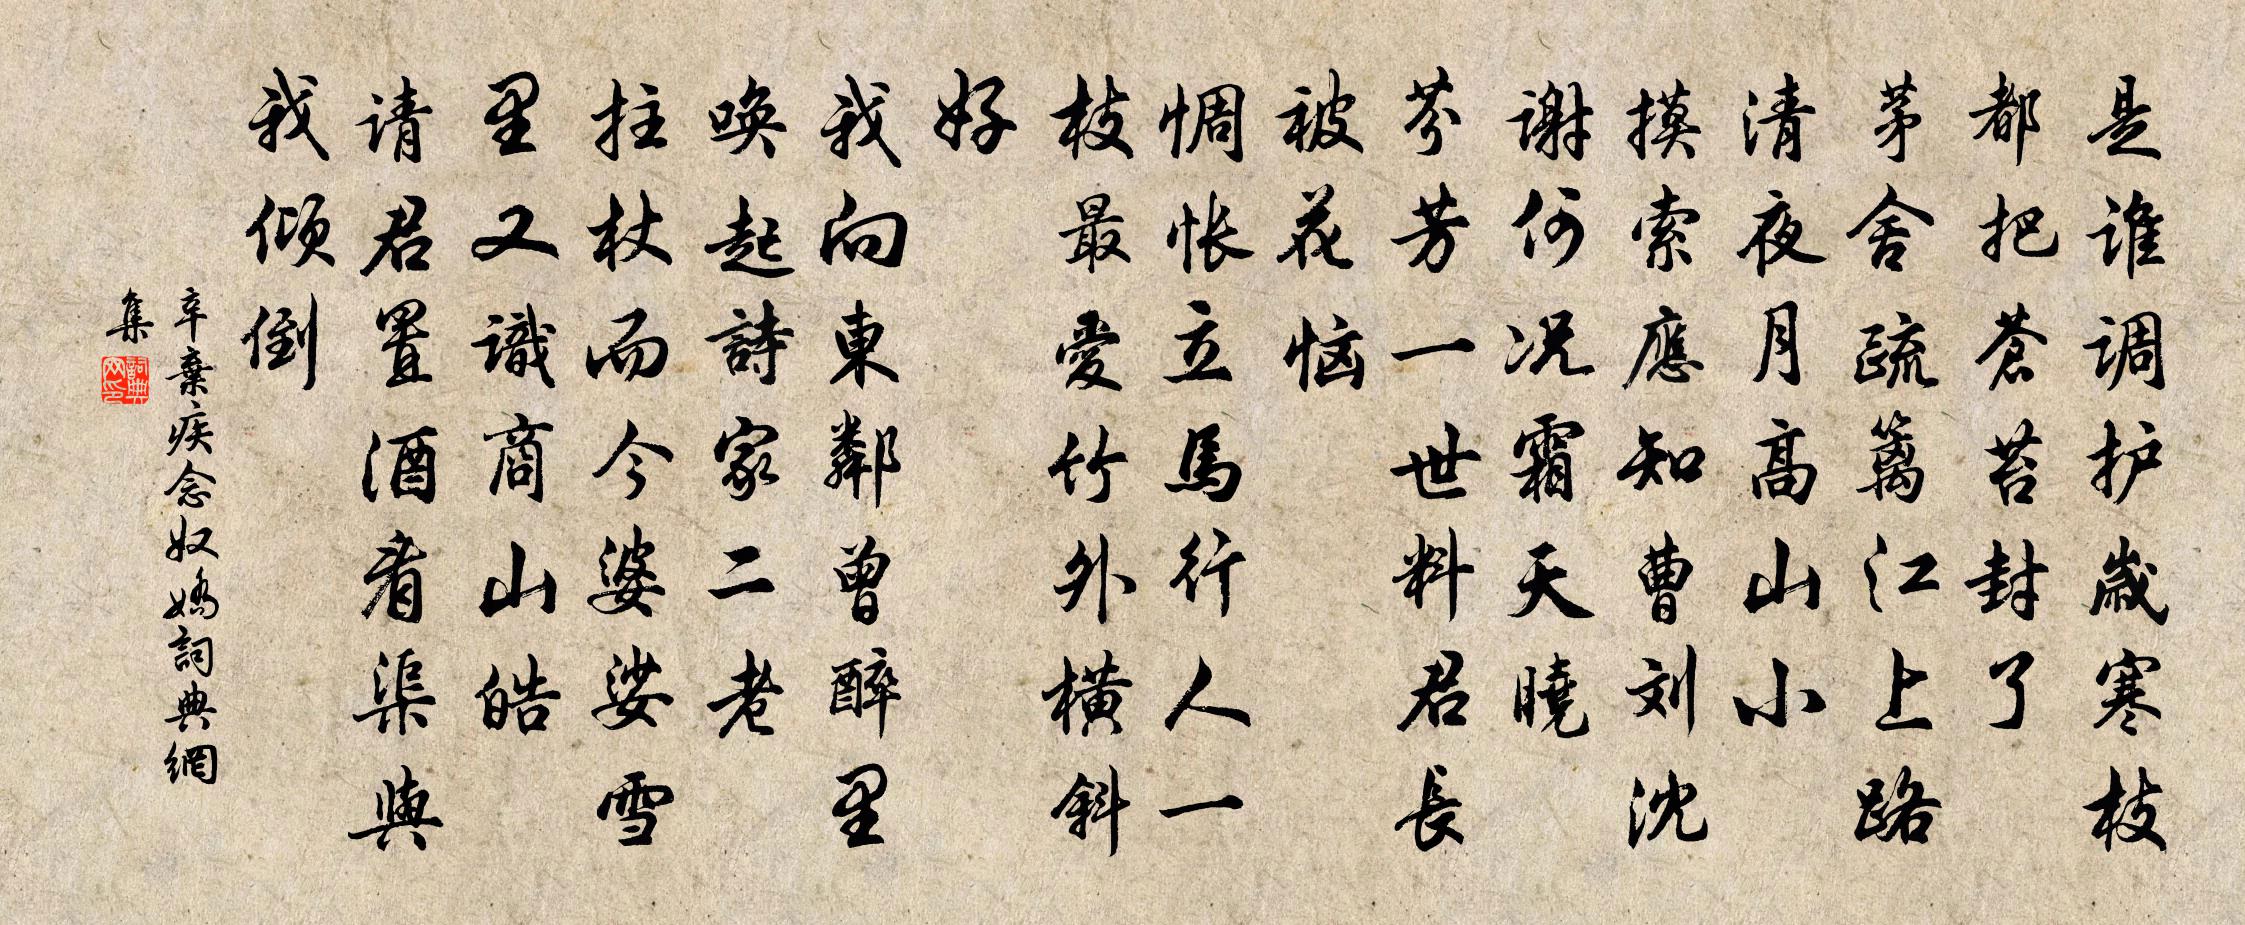 是谁调护岁寒枝
都把苍苔封了
茅舍疏篱江上路
清夜月高山小
摸索應知曹刘沈
谢何况霜天曉
芬芳一世料君長
被花恼
惆怅立馬行人一
枝最爱竹外横斜
好
我向東鄰曾醉里
唤起詩家二老
拄杖而今婆娑雪
里又識商山皓
请君置酒看渠與
我倾倒
辛棄疾念奴嬌詞典網
集
詞典网印